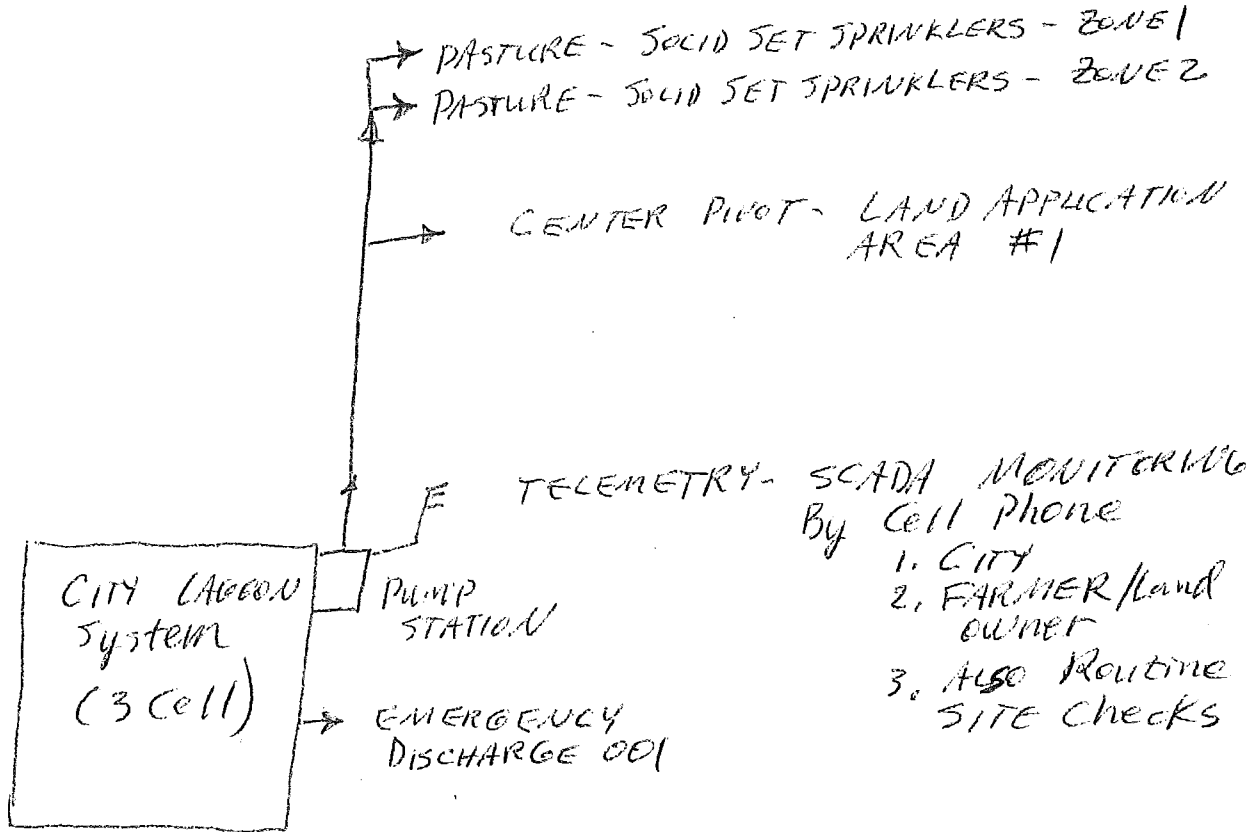 PASTURE - SOLID SET SPRINKLERS - ZONE 1
PASTURE - SOLID SET SPRINKLERS - ZONE 2
CENTER PIVOT - LAND APPLICATION
AREA #1
TELEMETRY - SCADA MONITORING
By Cell Phone
1. CITY
2. FARMER/Land
owner
3. Also Routine
SITE Checks
CITY LAGOON
System
(3 Cell)
PUMP
STATION
EMERGENCY
DISCHARGE 001